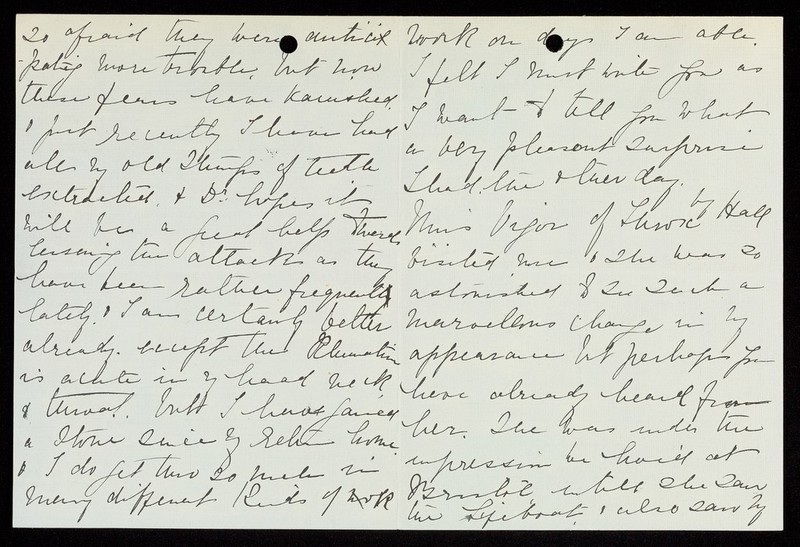 so afraid they were anticix
-pating more trouble, but now
these fears have vanished.
& just recently I have had
all my old stumps of teeth
extracted, & Dr. hopes it
will be a great help towards
lessening the attacks as they
have been rather frequently
lately. & I am certainly better
already. except the Rheumatism
is acute in my head neck
& throat. But I have gained
a stone since my return home
& I do get thro so much in
many different kinds of work
work on days I am able.
I felt I must write you as
I want to tell you what
a very pleasant surprise
I had the other day.
Miss Vigor of by Hall
visited me & she was so
astonished to see such a
marvellous change in my
appearance but perhaps you
have already heard from
her. She was under the
impression we lived at
Bristol, until she saw
the Lifeboat, & also saw my